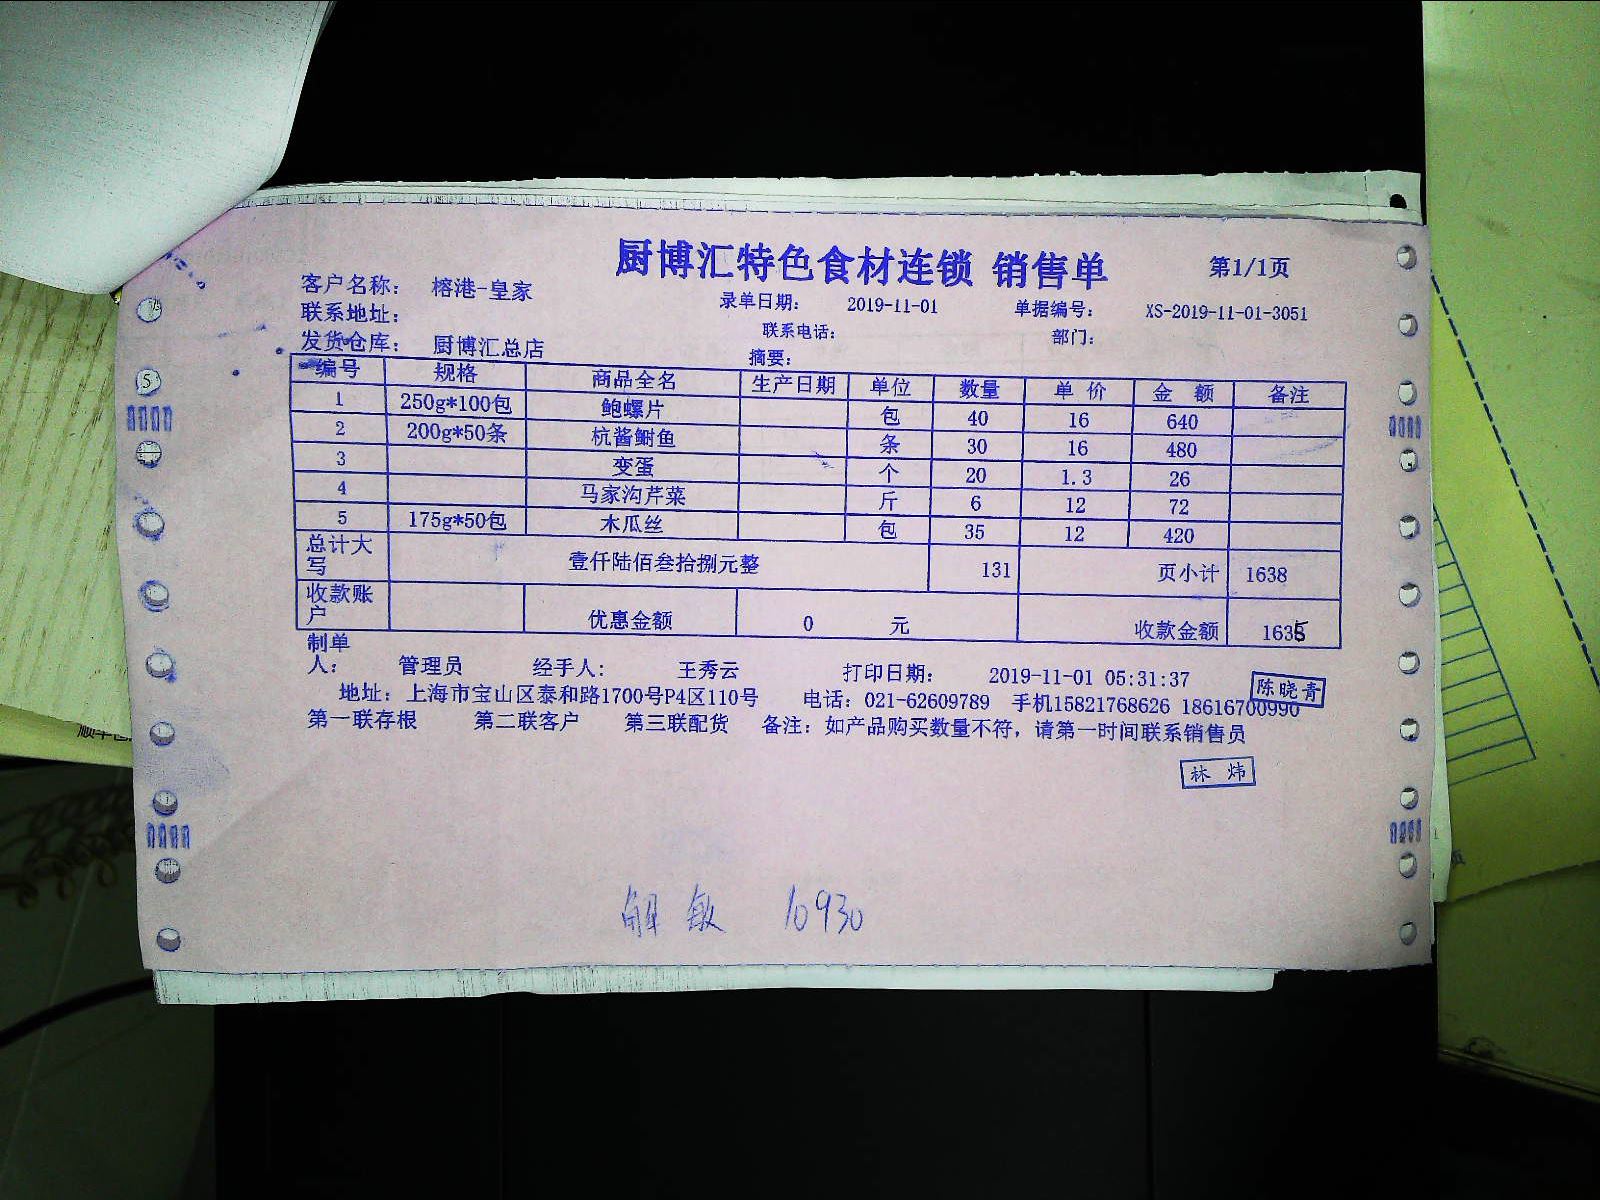 厨博汇特色食材连锁 销售单 第1/1页
客户名称： 榕港-皇家 录单日期： 2019-11-01 单据编号： XS-2019-11-01-3051
联系地址： 联系电话： 部门：
发货仓库： 厨博汇总店 摘要：
编号 规格 商品全名 生产日期 单位 数量 单 价 金 额 备注
1 250g*100包 鲍螺片 包 40 16 640
2 200g*50条 杭酱鲋鱼 条 30 16 480
3 变蛋 个 20 1.3 26
4 马家沟芹菜 斤 6 12 72
5 175g*50包 木瓜丝 包 35 12 420
总计大写 壹仟陆佰叁拾捌元整 131 页小计 1638
收款账户 优惠金额 0 元 收款金额 1635
制单人： 管理员 经手人： 王秀云 打印日期： 2019-11-01 05:31:37
陈晓青
地址：上海市宝山区泰和路1700号P4区110号 电话：021-62609789 手机15821768626 18616700990
第一联存根 第二联客户 第三联配货 备注：如产品购买数量不符，请第一时间联系销售员
林 炜
解敏 10930